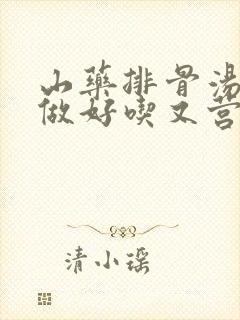 山藥排骨湯
做好喫又营
清小瑶